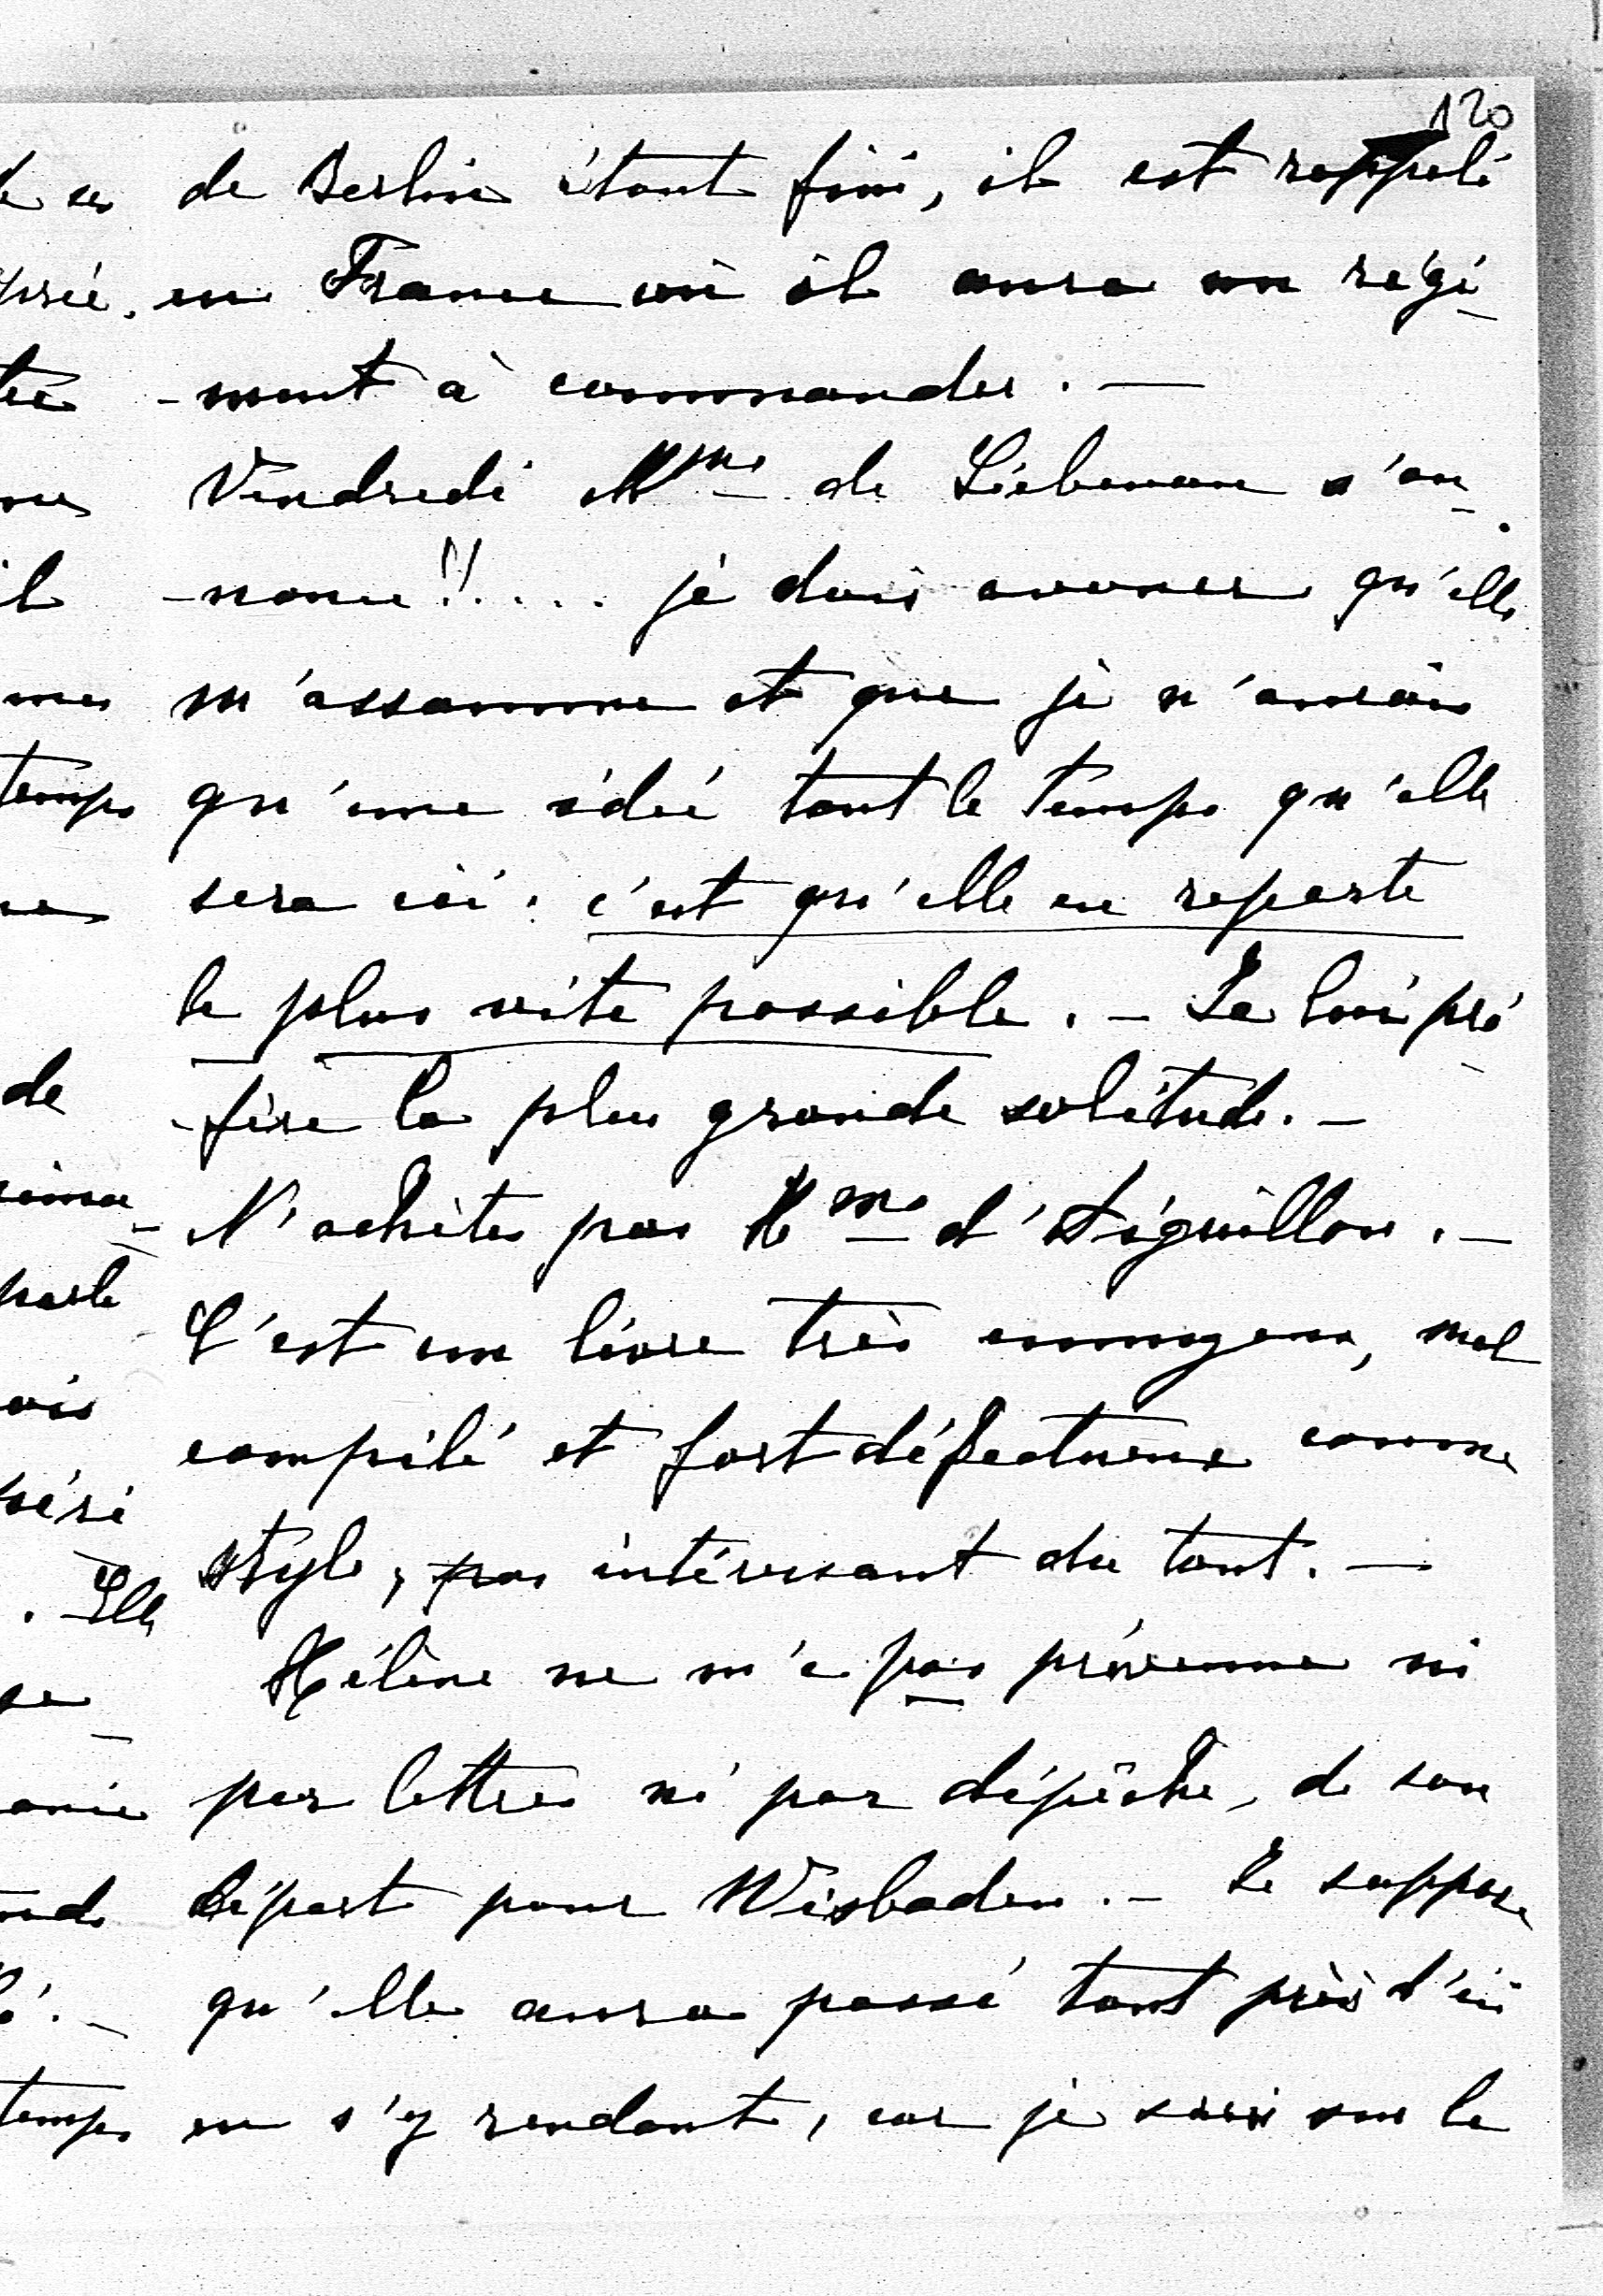 120
de Berlin étant fini, il est rappelé
en France où il aura un régi-
-ment à commander. —
Vendredi Mme de Liebenau s'an-
-nonce!!.... je dois avouer qu'elle
m'assomme et que je n'aurais
qu'une idée tout le temps qu'elle
sera ici : c'est qu'elle en reparte
le plus vite possible. — Je lui pré-
-fère la plus grande solitude. —
N'achètes pas Mme d'Aiguillon. —
C'est un livre très ennuyeux, mal
compilé et fort défectueux comme
style, pas intéressant du tout. —
Hélène ne m'a pas prévenue ni
par lettre ni par dépêche, de son
départ pour Wisbaden. — Je suppose
qu'elle aura passé tout près d'ici
en s'y rendant, car je suis sur le
de
temps
parle
. Elle
temps